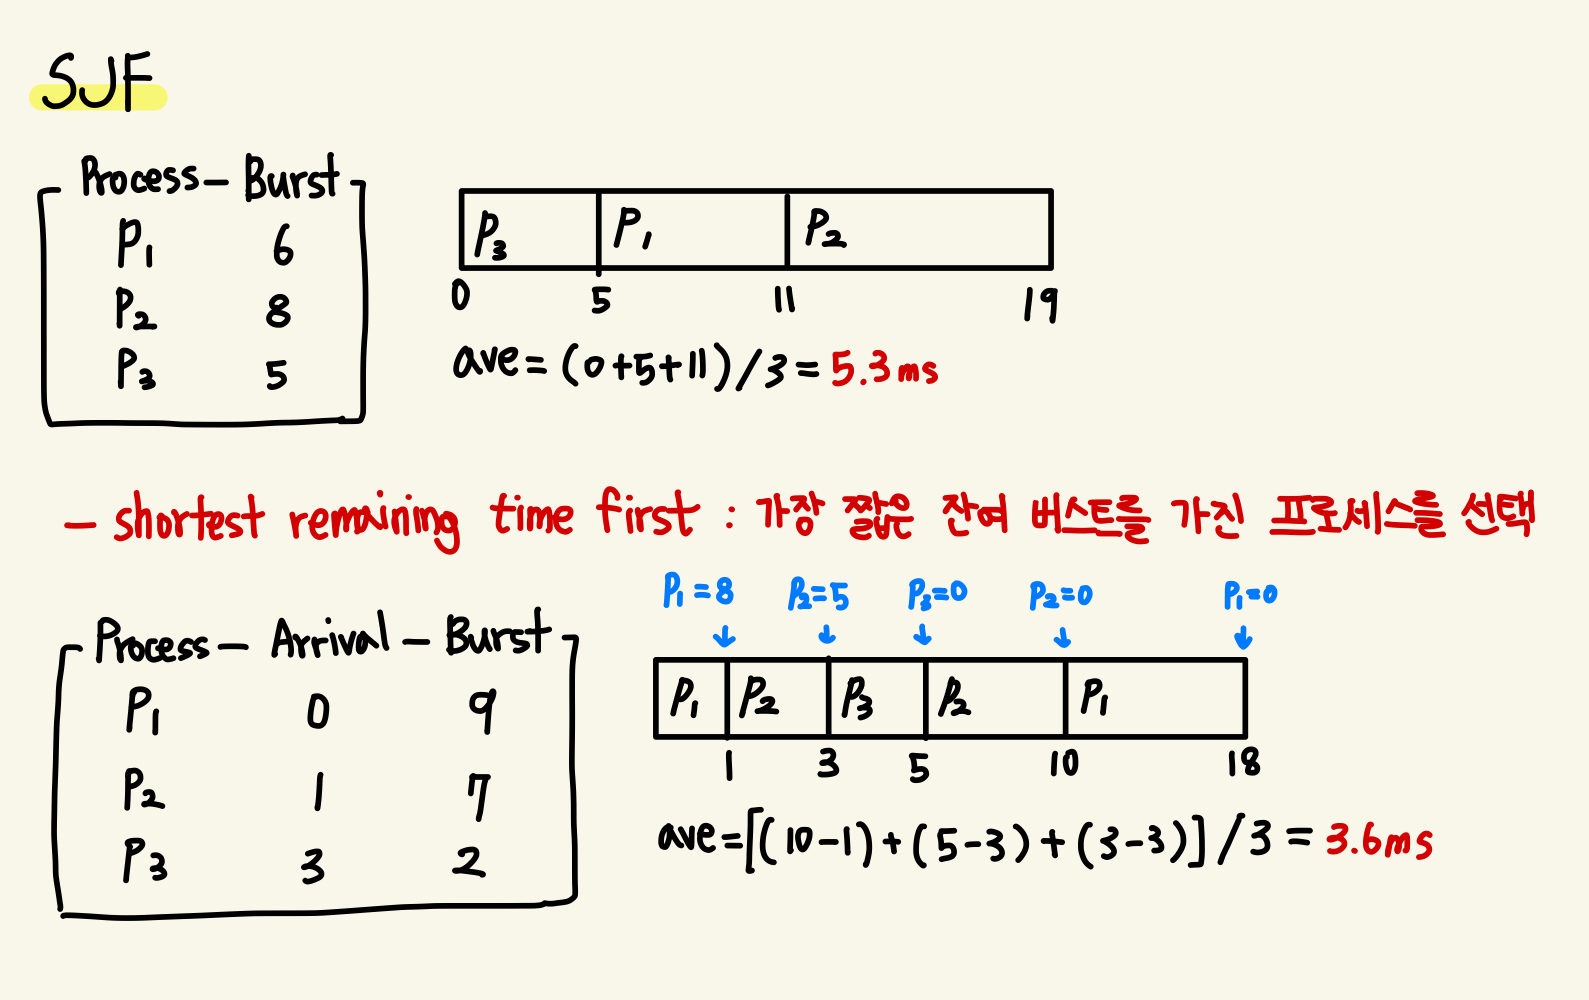 SJF
Process - Burst
P1 6
P2 8
P3 5
P3 P1 P2
0 5 11 19
ave = (0+5+11)/3 = 5.3ms
- shortest remaining time first : 가장 짧은 잔여 버스트를 가진 프로세스를 선택
Process - Arrival - Burst
P1 0 9
P2 1 7
P3 3 2
P1=8 P2=5 P3=0 P2=0 P1=0
P1 P2 P3 P2 P1
1 3 5 10 18
ave=[(10-1)+(5-3)+(3-3)]/3 = 3.6ms